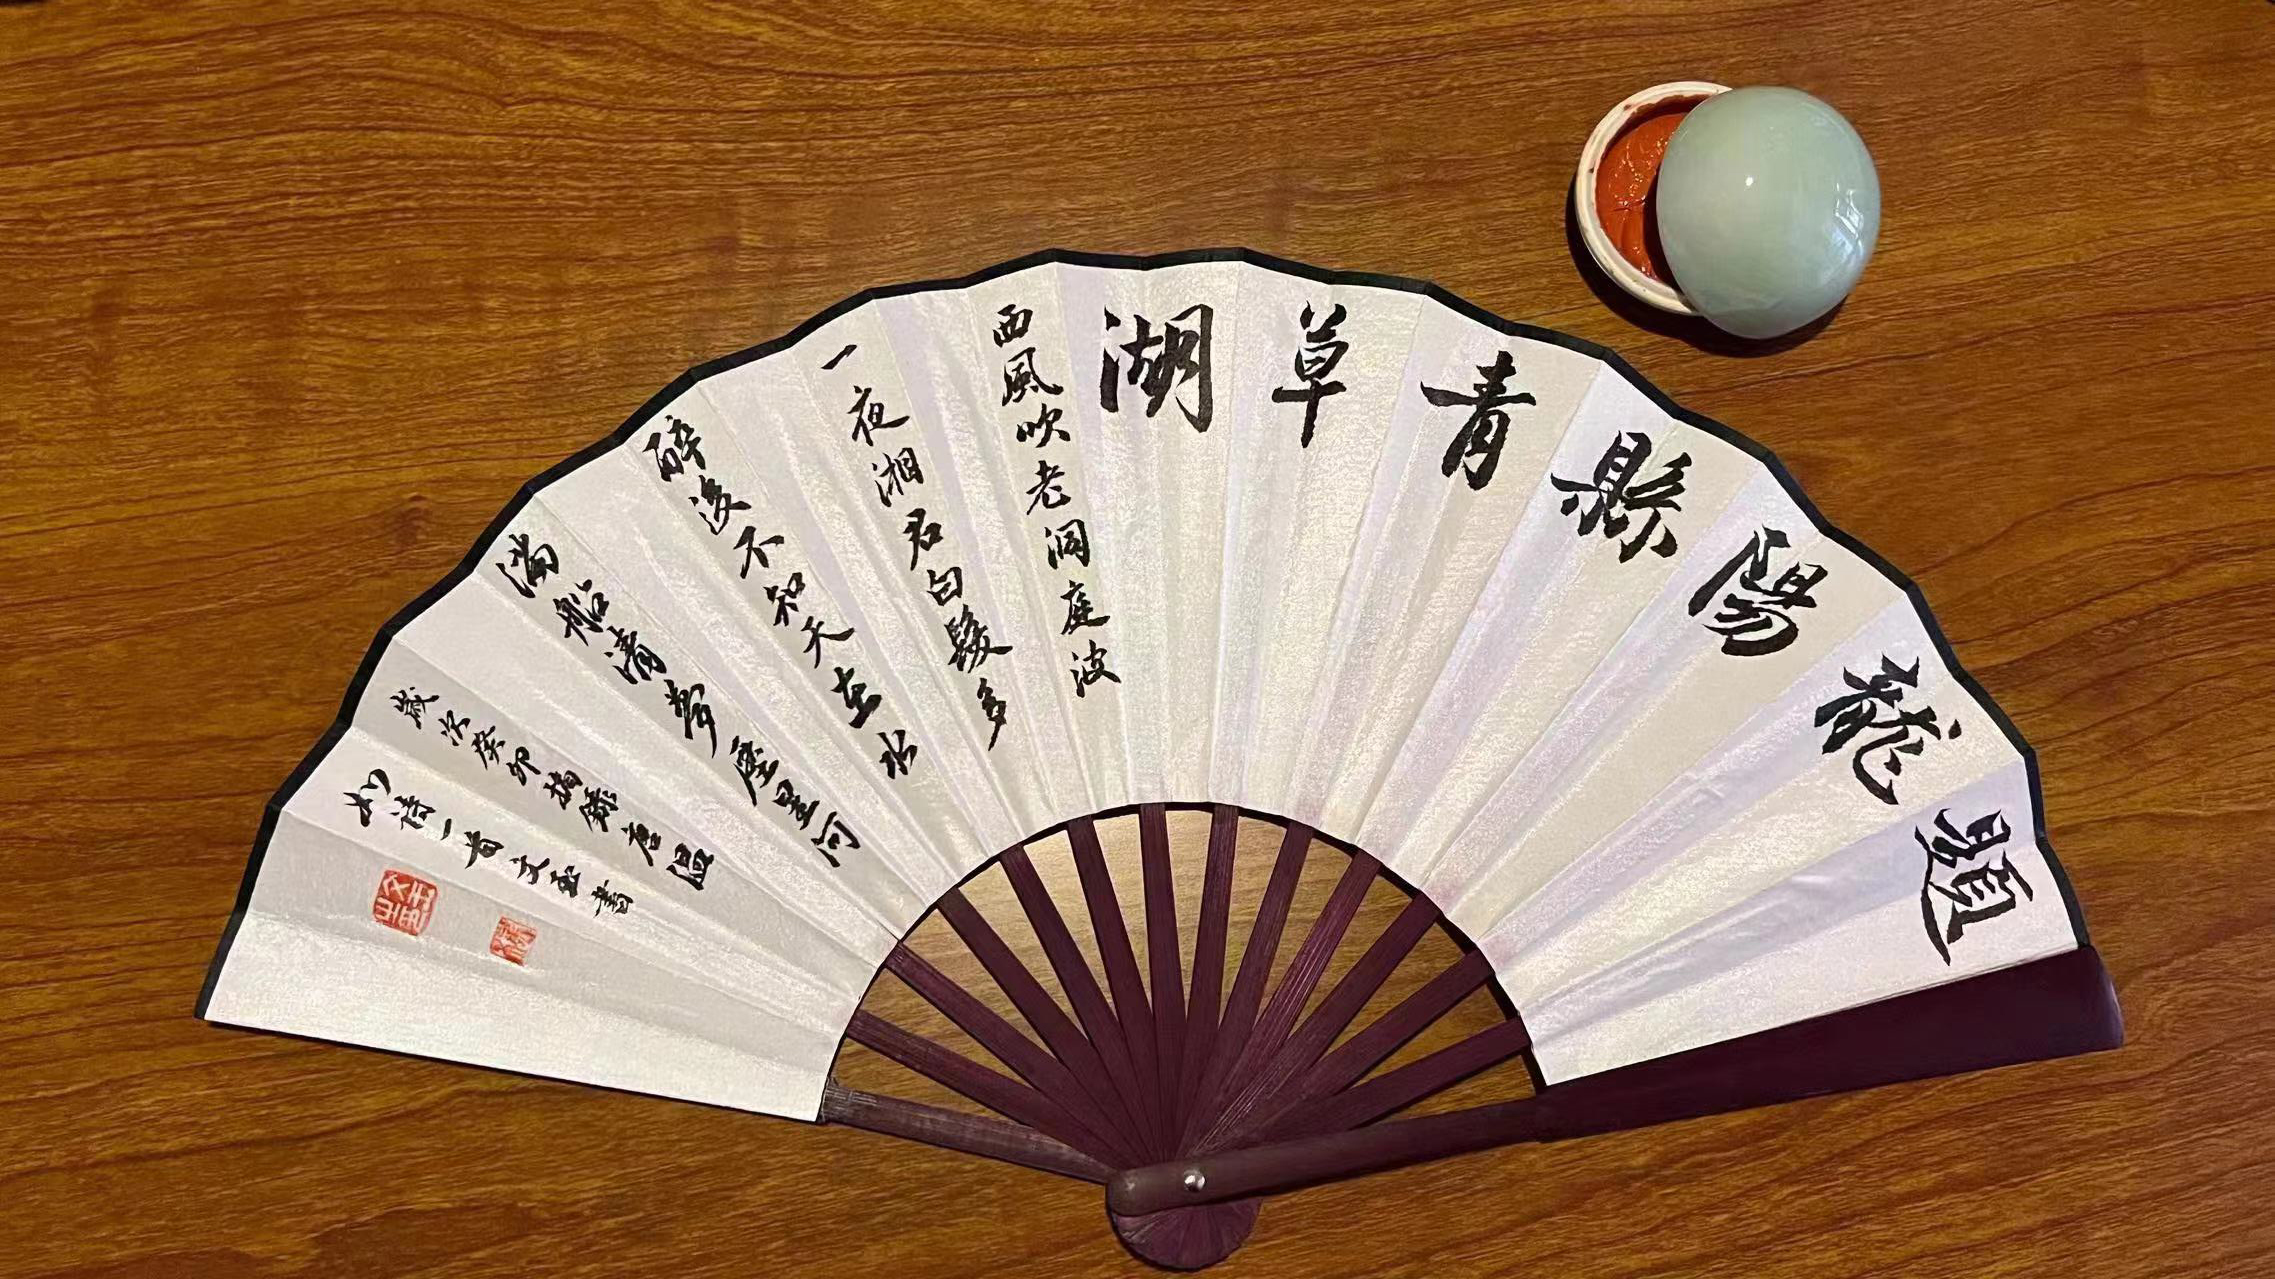 題龍陽縣青草湖
西風吹老洞庭波
一夜湘君白髮多
醉後不知天在水
滿船清夢壓星河
歲次癸卯摘錄唐溫
如詩一首文玉書